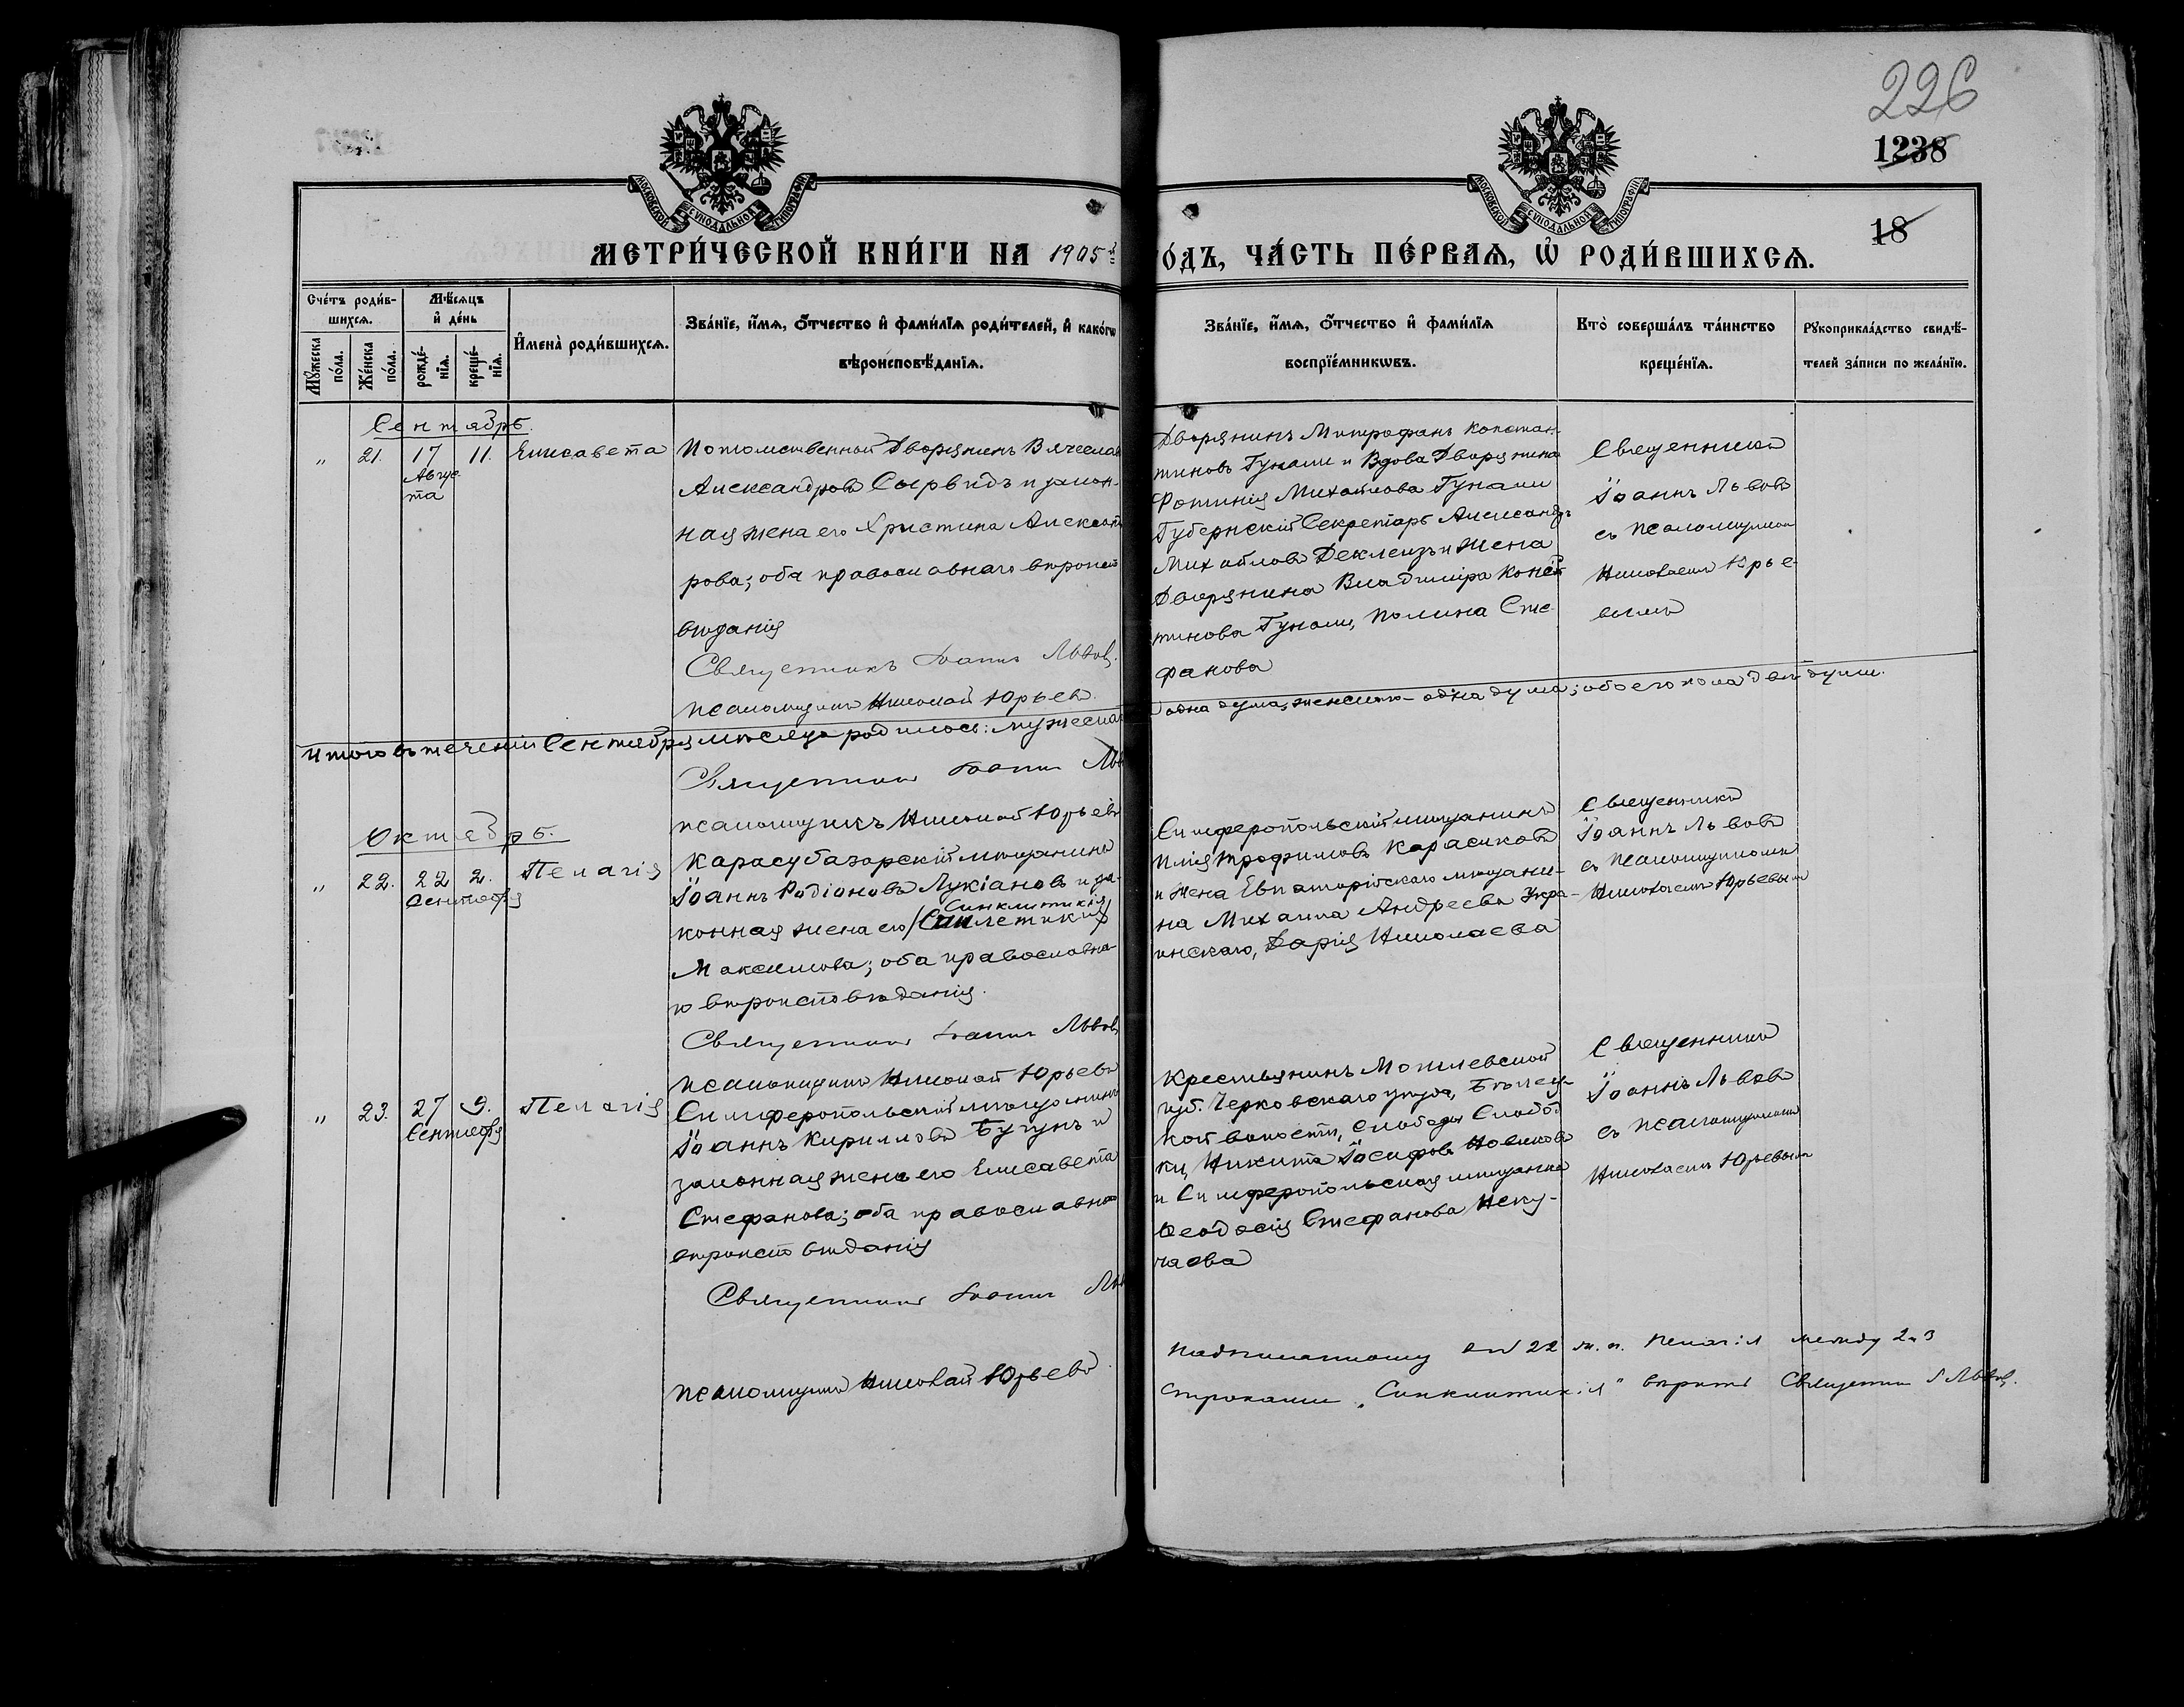 226
1238
18
МОСКОВСКОЙ СѴНОДАЛЬНОЙ ТИПОГРАФІИ
МОСКОВСКОЙ СѴНОДАЛЬНОЙ ТИПОГРАФІИ
МЕТРИ́ЧЕСКОЙ КНИ́ГИ НА 1905й
ГО́ДЪ, ЧА́СТЬ ПЕ́РВАѦ, Ѡ҆ РОДИ́ВШИХСѦ.
Сче́тъ роди́в-
шихсѧ.
Мꙋ́жеска по́ла.
Же́нска по́ла.
Мѣ́сѧцъ
и҆ де́нь
рожде́-
нїѧ.
креще́-
нїѧ.
И҆мена̀ роди́вшихсѧ.
Зва́нїе, и҆́мѧ, ѻ҆́тчество и҆ фами́лїѧ роди́телей, и҆ како́гѡ
вѣроисповѣ́данїѧ.
Зва́нїе, и҆́мѧ, ѻ҆́тчество и҆ фами́лїѧ
воспрїе́мникѡвъ.
Кто̀ соверша́лъ та́инство
креще́нїѧ.
Рꙋкоприкла́дство свидѣ́-
телей за́писи по жела́нїю.
Сентябрь.
„ 21. 17 11. Елисавета
Авгус
та
Потомственный Дворянинъ Вячеслав
Александровъ Сырвидъ и закон-
ная жена его Христина Александ
рова; оба православнаго вѣроиспо
вѣданія
Священникъ Іоаннъ Львов.
псаломщикъ Николай Юрьевъ.
Дворянинъ Митрофанъ Констан-
тиновъ Гунали и Вдова Дворянина
Фотинія Михайлова Гунали
Губернскій Секретарь Александръ
Михайловъ и Жена
Дворянина Владиміра Конст
тинова Гунали, Полина Сте-
фанова
Священникъ
Іоаннъ Львовъ
съ псаломщикомъ
Николаемъ Юрье-
вымъ
Итого въ теченіи Сентября мѣсяца родилось: мужеска
одна душа, женска - одна душа; обоего пола двѣ души.
Священникъ Іоаннъ Льв
псаломщикъ Николай Юрьевъ
Октябрь.
„ 22. 22 2. Пелагія
Сентября
Карасубазарскій мѣщанинъ
Іоаннъ Родіоновъ Лукіановъ и за-
Синклитикія
конная жена его
Максимова; оба православна-
го вѣроисповѣданія.
Священникъ Іоаннъ Львов
псаломщикъ Николай Юрьевъ
Симферопольскій мѣщанинъ
Илія Трофимовъ Карасиковъ
и Жена Евпаторійскаго мѣщани-
на Михаила Андреева Укра-
инскаго, Дарія Николаева
Священникъ
Іоаннъ Львовъ
съ псаломщикомъ
Николаемъ Юрьевымъ
„ 23. 27 9. Пелагія
Сентября
Симферопольскій мѣщанинъ
Іоаннъ Кирилловъ Бугунъ и
законная жена его Елисавета
Стефанова; оба православнаго
вѣроисповѣданія
Священникъ Іоаннъ Льв
псаломщикъ Николай Юрьевъ.
Крестьянинъ Могилевской
губ. Черковскаго уѣзда,
кой волости, слободы Слобод
ки, Никита Іосифовъ Новиковъ
и Симферопольская мѣщанка
Ѳеодосія Стефанова Неку-
чаева
Священникъ
Іоаннъ Львовъ
съ псаломщикомъ
Николаемъ Юрьевымъ
Надписанному 22 ж. п. Пелагія между 2 и 3
строками „Синклитикія" вѣрить Священник І Львов.